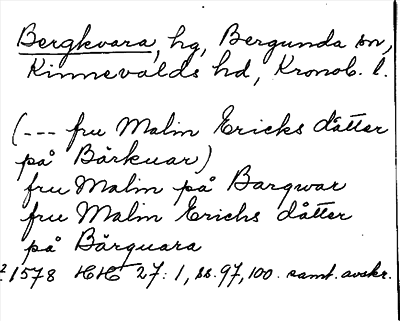 Bergkvara, hg, Bergunda sn,
Kinnevalds hd, Kronob. l.
(--- fru Malin Ericks dåtter
på Bärkuar)
fru Malin på Bargwar
fru Malin Erichs dåtter
på Bärquara
1578 HH 27:1, ss. 97, 100. samt. avskr.